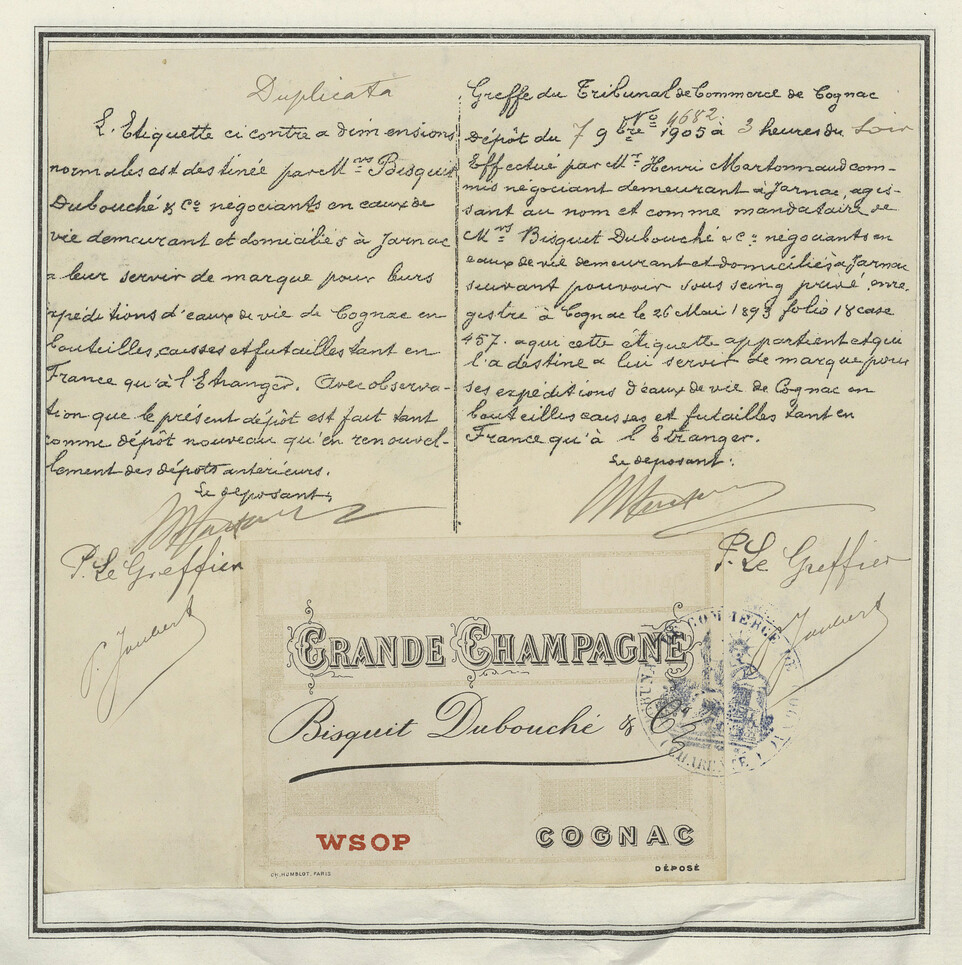 Duplicata
L'Etiquette ci contre a dimensions
normales est destinée par Mrs Bisquit
Dubouché & Co négociants en eaux de
vie demeurant et domiciliés à Jarnac
a leur servir de marque pour leurs
expéditions d'eaux de vie de Cognac en
bouteilles, caisses et futailles tant en
France qu'à l'Etranger. Avec observa-
tion que le présent dépôt est fait tant
comme dépôt nouveau qu'en renouvel-
lement des dépôts antérieurs.
Le deposant,
P. Le Greffier
P. Joubert
Greffe du Tribunal de Commerce de Cognac
No 4682.
Dépôt du 7 9bre 1905 à 3 heures du soir
Effectué par Mr Henri Martonnaud com-
mis négociant demeurant à Jarnac, agis-
sant au nom et comme mandataire de
Mrs Bisquit Dubouché & Co négociants en
eaux de vie demeurant et domiciliés à Jarnac
suivant pouvoir sous seing privé enre-
gistré à Cognac le 26 Mai 1893 folio 18 case
457. a qui cette étiquette appartient et qui
l'a destine a lui servir de marque pour
ses expéditions d'eaux de vie de Cognac en
bouteilles caisses et futailles tant en
France qu'à l'Etranger.
Le deposant:
P. Le Greffier
Joubert
GRANDE CHAMPAGNE
Bisquit Dubouché & Co
WSOP COGNAC
CH. HUMBLOT, PARIS DÉPOSÉ
TRIBUNAL DE COMMERCE DE COGNAC
(CHARENTE)